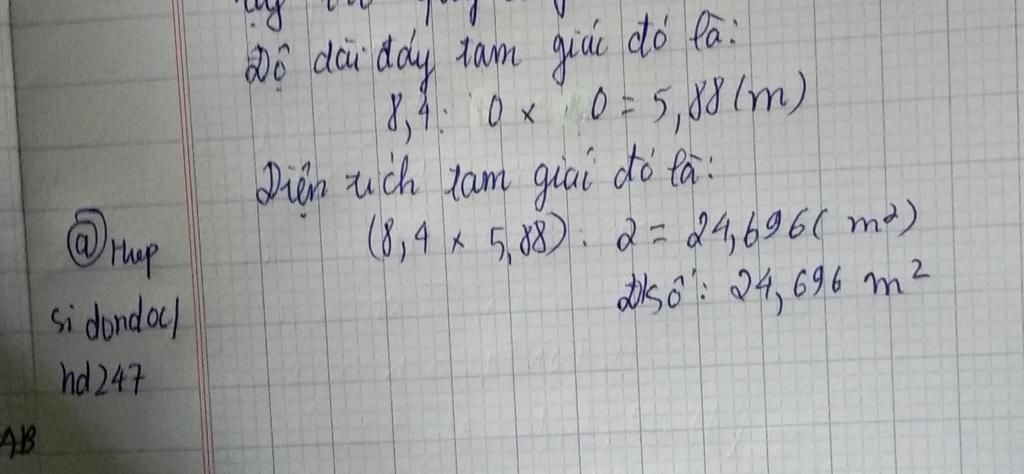 Độ dài đáy tam giác đó là:
8,4: 0 x 0 = 5,88 (m)
Diện tích tam giác đó là:
(8,4 x 5,88) : 2 = 24,696 ( m²)
Đ/số: 24,696 m²
@ Hiệp
si dondoc/
hd247
AB